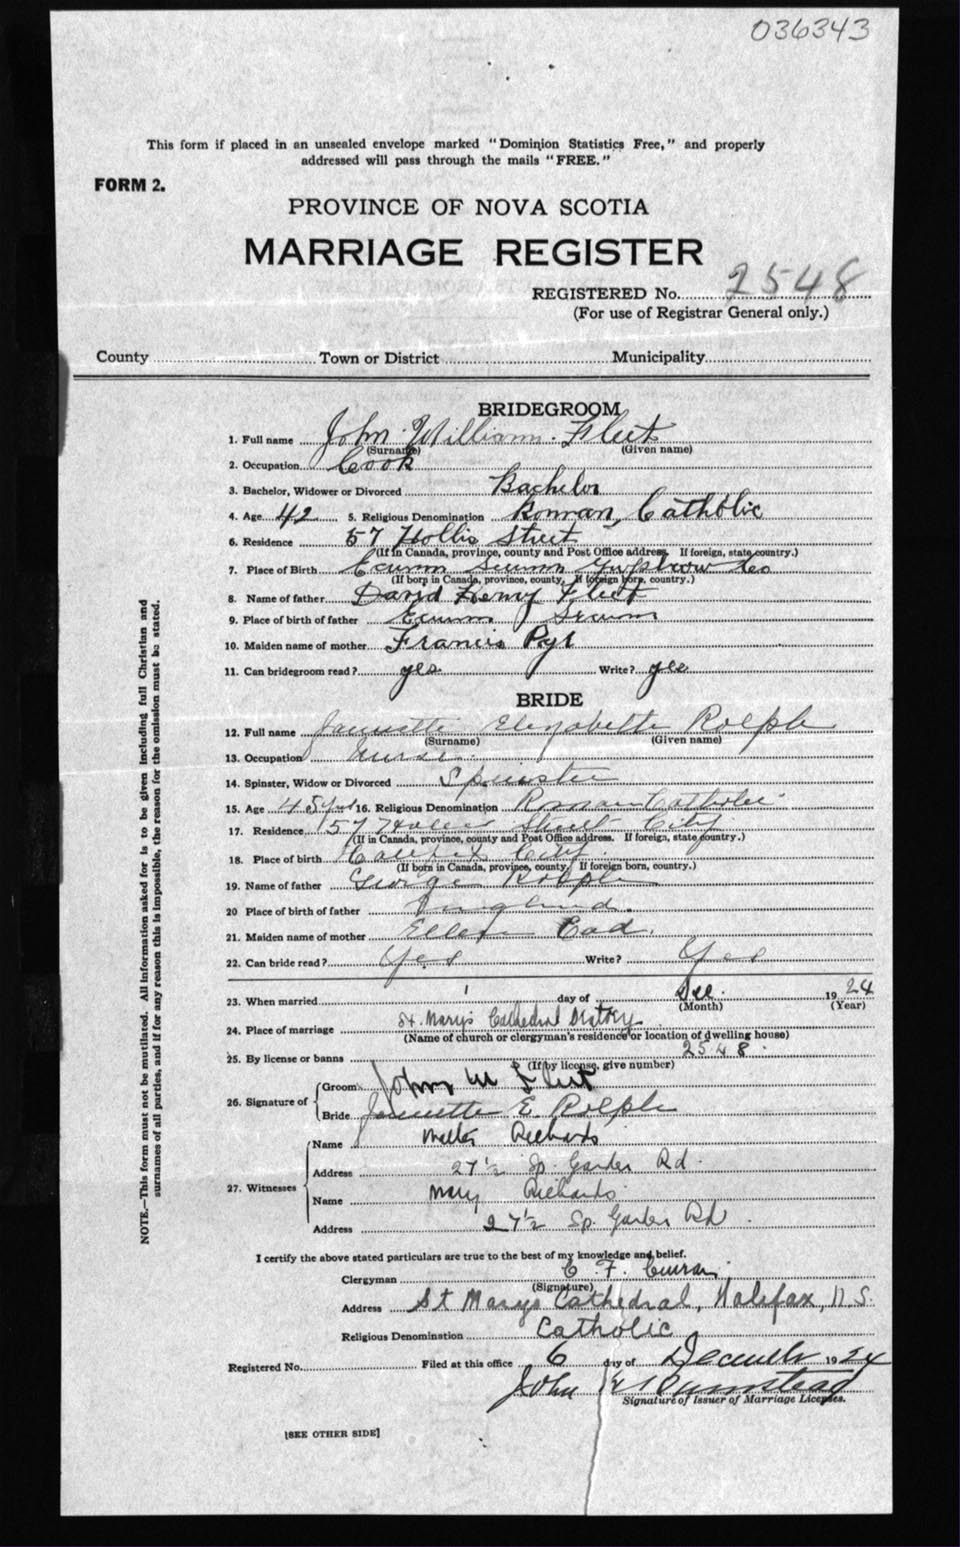 036343
This form if placed in an unsealed envelope marked "Dominion Statistics Free," and properly
addressed will pass through the mails "FREE."
FORM 2.
PROVINCE OF NOVA SCOTIA
MARRIAGE REGISTER
REGISTERED No. 2548
(For use of Registrar General only.)
County Town or District Municipality
BRIDEGROOM
1. Full name John William Fleet
(Surname) (Given name)
2. Occupation Cook
3. Bachelor, Widower or Divorced Bachelor
4. Age 42 5. Religious Denomination Roman, Catholic
6. Residence 57 Hollis Street
(If in Canada, province, county and Post Office address. If foreign, state country.)
7. Place of Birth Ecum Secum
(If born in Canada, province, county, If foreign born, country.)
8. Name of father David Henry Fleet
9. Place of birth of father Ecum Secum
10. Maiden name of mother Francis Pye
11. Can bridegroom read? yes Write? yes
BRIDE
12. Full name Jannette Elizabette Rolph
(Surname) (Given name)
13. Occupation Nurse
14. Spinster, Widow or Divorced Spinster
15. Age 45 yrs 16. Religious Denomination Roman Catholic
17. Residence 157 Hollis Street City
(If in Canada, province, county and Post Office address. If foreign, state country.)
18. Place of birth Halifax City
(If born in Canada, province, county, If foreign born, country.)
19. Name of father George Rolph
20 Place of birth of father England.
21. Maiden name of mother Ellen Cod.
22. Can bride read? Yes Write? Yes
23. When married 1 day of Dec. 1924
(Month) (Year)
24. Place of marriage St. Mary's Cathedral
(Name of church or clergyman's residence or location of dwelling house)
25. By license or banns 2548.
(If by license, give number)
26. Signature of
Groom John W Fleet
Bride Jannette E. Rolph
27. Witnesses
Name Walter Richards
Address 27½ Sp. Garden Rd.
Name Mary Richards
Address 27½ Sp. Garden Rd.
I certify the above stated particulars are true to the best of my knowledge and belief.
Clergyman C. F. Curran
(Signature)
Address St Marys Cathedral, Halifax, N.S.
Religious Denomination Catholic
Registered No. Filed at this office 6 day of December 1924
John
Signature of Issuer of Marriage Licenses.
[SEE OTHER SIDE]
NOTE.—This form must not be mutilated. All information asked for is to be given including full Christian and
surnames of all parties, and if for any reason this is impossible, the reason for the omission must be stated.